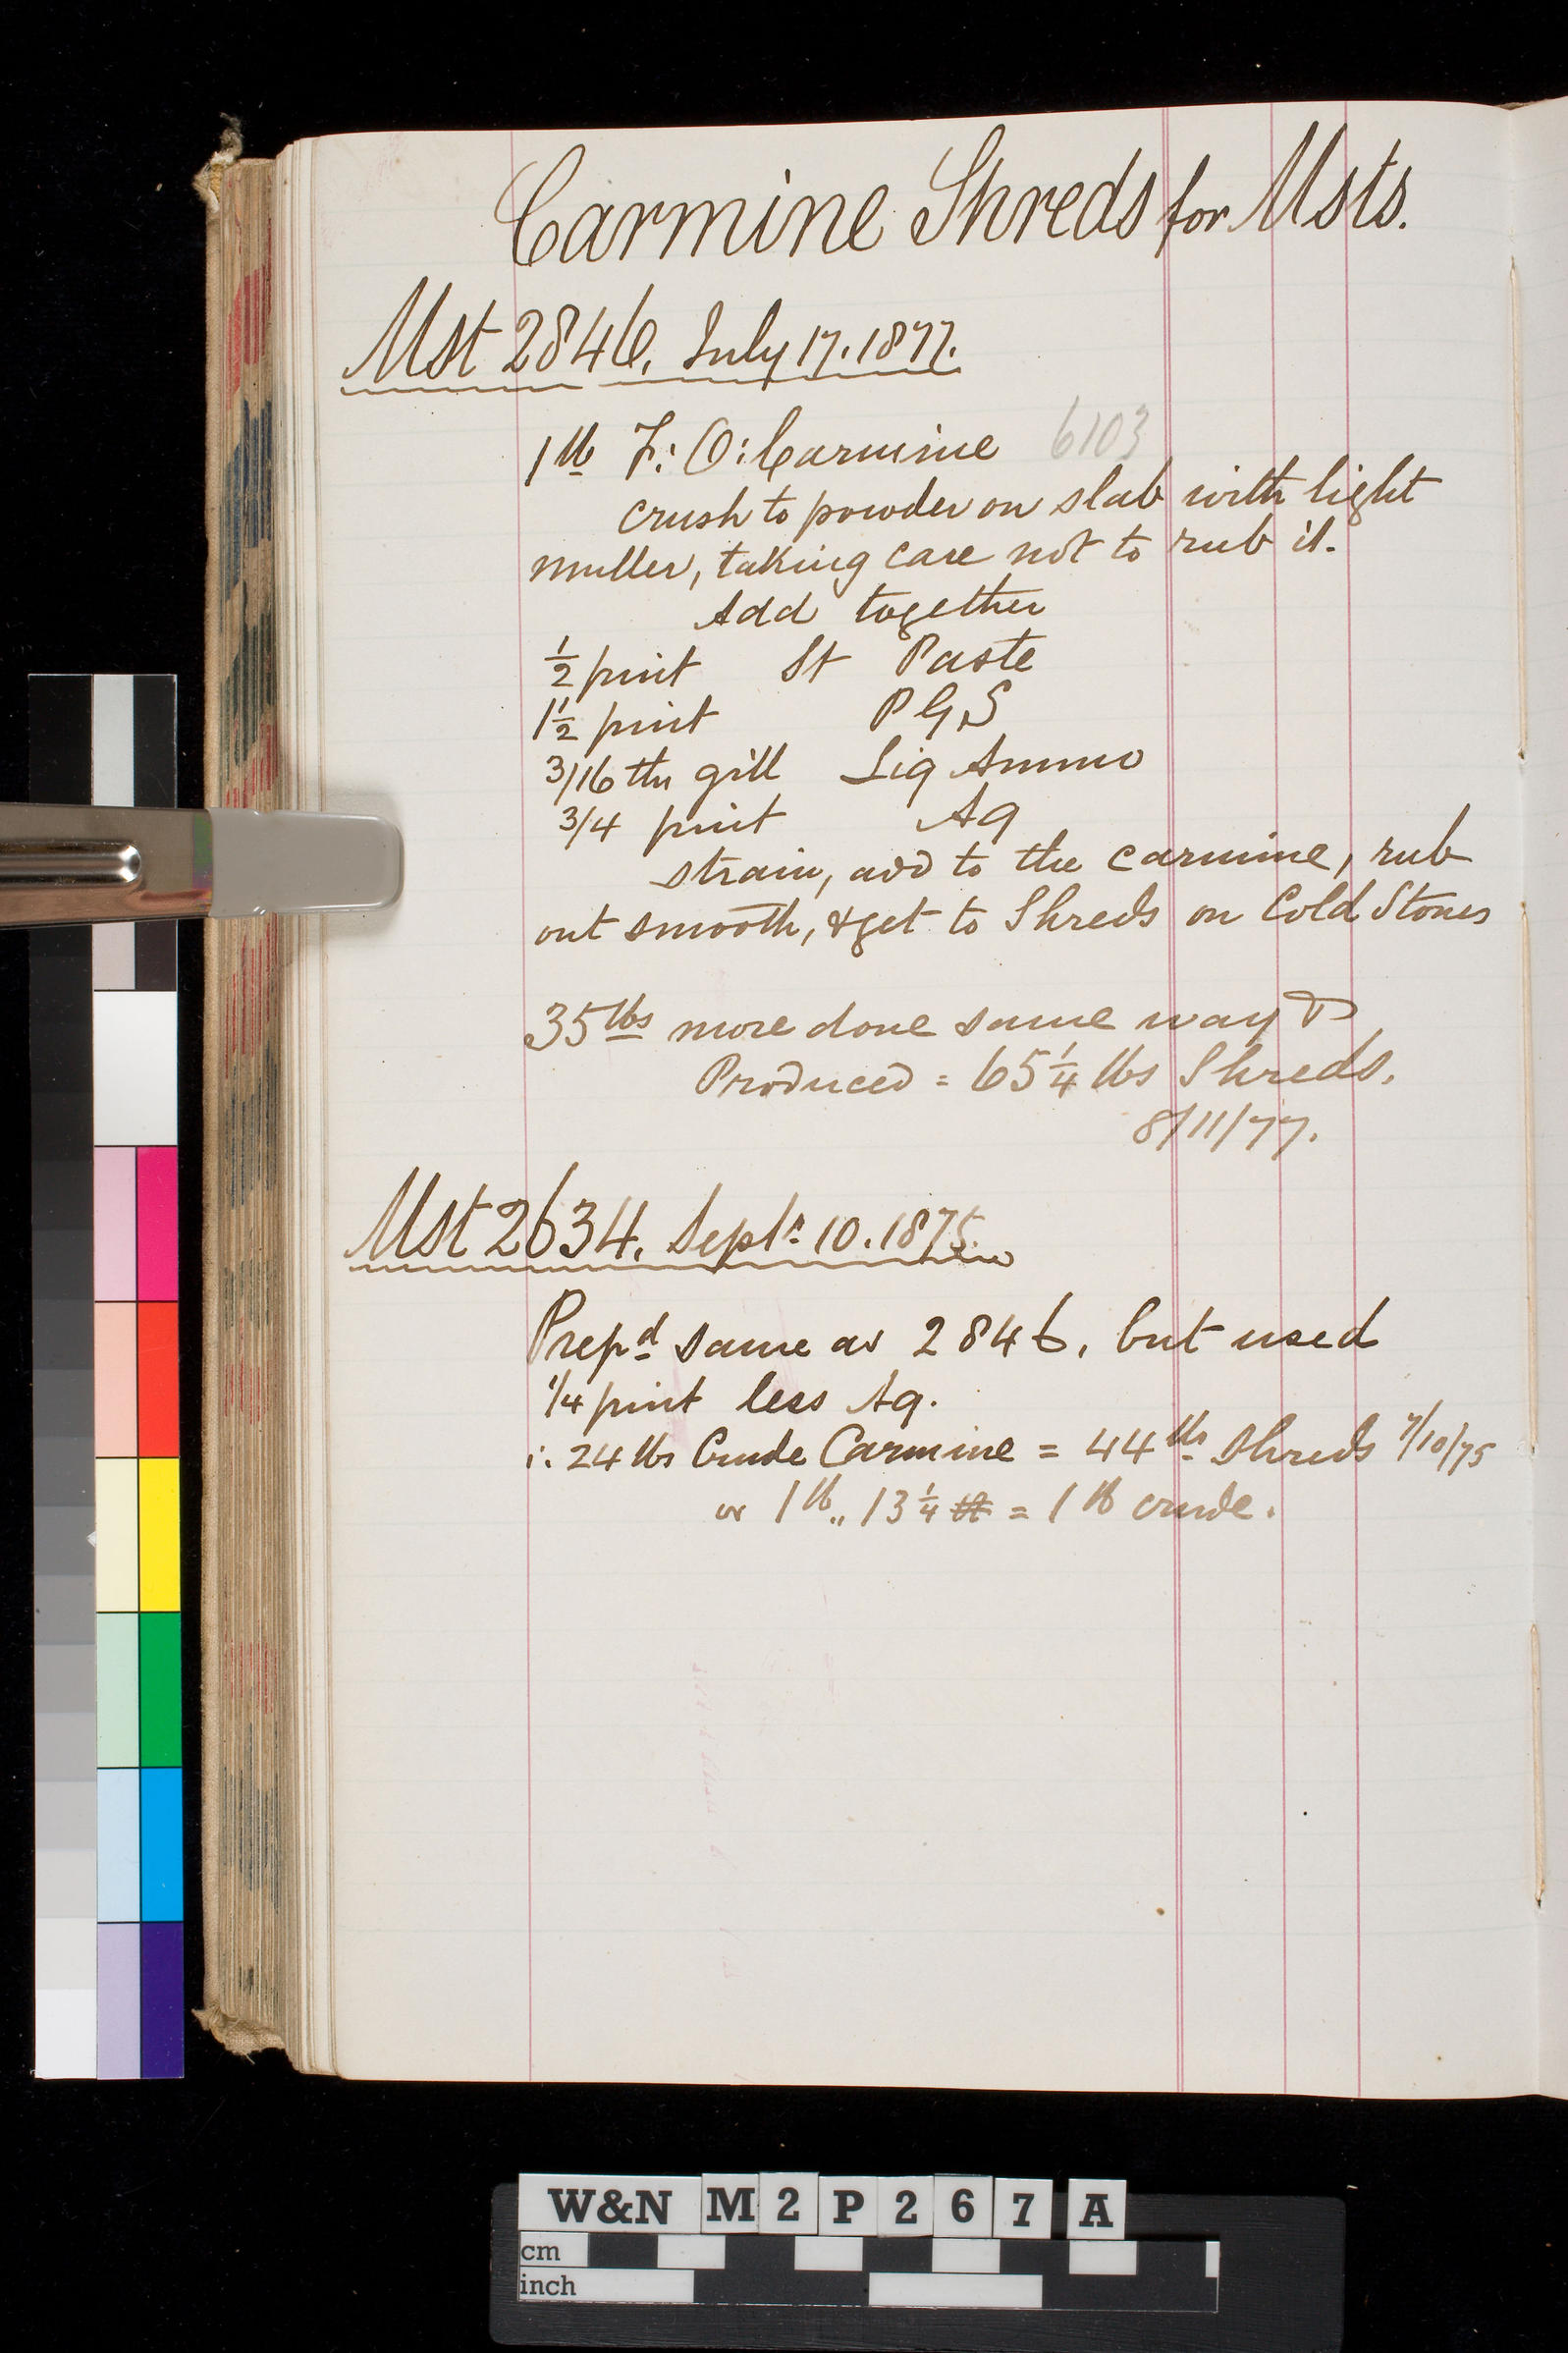 Carmine Shreds for Msts.
Mst 2846. July 17. 1877.
1 lb F: O: Carmine 6103
crush to powder on slab with light
muller, taking care not to rub it.
Add together
½ pint St Paste
1½ pint P G S
3/16 ths gill Liq Ammo
3/4 pint Aq
strain, add to the carmine, rub
out smooth, & get to Shreds on Cold Stones
35 lbs more done same way &
Produced = 65¼ lbs Shreds.
8/11/77.
Mst 2634. Septr 10. 1875.
Prepd same as 2846. but used
1/4 pint less Aq.
∴ 24 lbs Crude Carmine = 44 lbs Shreds 7/10/75
or 1 lb,, 13¼ = 1 lb crude.
W&N M2P267A
cm
inch